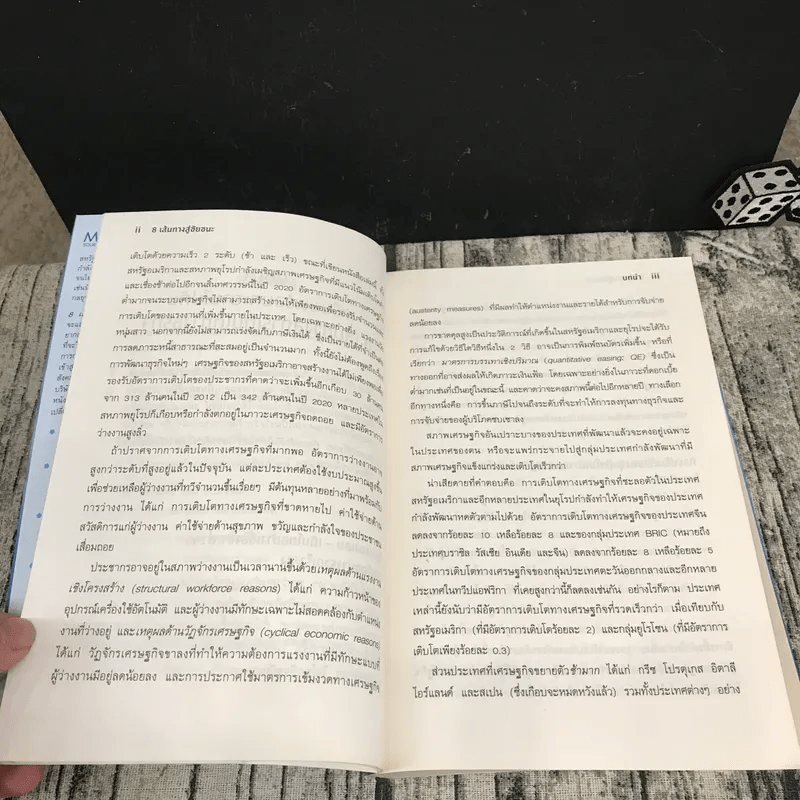 ii 8 เส้นทางสู่ชัยชนะ
เติบโตด้วยความเร็ว 2 ระดับ (ช้า และ เร็ว) ขณะที่เขียนหนังสือเล่มนี้ ทั้ง
สหรัฐอเมริกาและสหภาพยุโรปกำลังเผชิญสภาพเศรษฐกิจที่มีแนวโน้มเติบโตช้า
และเชื่องช้าต่อไปอีกจนสิ้นทศวรรษนี้ในปี 2020 อัตราการเติบโตทางเศรษฐกิจ
ต่ำมากจนระบบเศรษฐกิจไม่สามารถสร้างงานให้เพียงพอเพื่อรองรับจำนวนและ
การเติบโตของแรงงานที่เพิ่มขึ้นภายในประเทศ โดยเฉพาะอย่างยิ่ง แรงงานวัย
หนุ่มสาว นอกจากนี้ยังไม่สามารถเร่งจัดเก็บภาษีเงินได้ ซึ่งเป็นรายได้ที่จำเป็นต่อ
การลดภาระหนี้สาธารณะที่สะสมอยู่เป็นจำนวนมาก ทั้งนี้ยังไม่ต้องพูดถึงเรื่อง
การพัฒนาธุรกิจใหม่ๆ เศรษฐกิจของสหรัฐอเมริกาอาจสร้างงานได้ไม่เพียงพอเพื่อ
รองรับอัตราการเติบโตของประชากรที่คาดว่าจะเพิ่มขึ้นอีกเกือบ 30 ล้านคน
จาก 313 ล้านคนในปี 2012 เป็น 342 ล้านคนในปี 2020 หลายประเทศใน
สหภาพยุโรปก็เกือบหรือกำลังตกอยู่ในภาวะเศรษฐกิจถดถอย และมีอัตราการ
ว่างงานสูงลิ่ว
ถ้าปราศจากการเติบโตทางเศรษฐกิจที่มากพอ อัตราการว่างงานอาจ
สูงกว่าระดับที่สูงอยู่แล้วในปัจจุบัน แต่ละประเทศต้องใช้งบประมาณสูงขึ้น
เพื่อช่วยเหลือผู้ว่างงานที่ทวีจำนวนขึ้นเรื่อยๆ มีต้นทุนหลายอย่างที่มาพร้อมกับ
การว่างงาน ได้แก่ การเติบโตทางเศรษฐกิจที่ขาดหายไป ค่าใช้จ่ายด้าน
สวัสดิการแก่ผู้ว่างงาน ค่าใช้จ่ายด้านสุขภาพ ขวัญและกำลังใจของประชาชน
เสื่อมถอย
ประชากรอาจอยู่ในสภาพว่างงานเป็นเวลานานขึ้นด้วยเหตุผลด้านแรงงาน
เชิงโครงสร้าง (structural workforce reasons) ได้แก่ ความก้าวหน้าของ
อุปกรณ์เครื่องใช้อัตโนมัติ และผู้ว่างงานมีทักษะเฉพาะไม่สอดคล้องกับตำแหน่ง
งานที่ว่างอยู่ และเหตุผลด้านวัฏจักรเศรษฐกิจ (cyclical economic reasons)
ได้แก่ วัฏจักรเศรษฐกิจขาลงที่ทำให้ความต้องการแรงงานที่มีทักษะแบบที่
ผู้ว่างงานมีอยู่ลดน้อยลง และการประกาศใช้มาตรการเข้มงวดทางเศรษฐกิจ
บทนำ iii
(austerity measures) ที่มีผลทำให้ตำแหน่งงานและรายได้สำหรับการจับจ่าย
ลดน้อยลง
การขาดดุลสูงเป็นประวัติการณ์ที่เกิดขึ้นในสหรัฐอเมริกาและยุโรปจะได้รับ
การแก้ไขด้วยวิธีใดวิธีหนึ่งใน 2 วิธี อาจเป็นการพิมพ์ธนบัตรเพิ่มขึ้น หรือที่
เรียกว่า มาตรการบรรเทาเชิงปริมาณ (quantitative easing: QE) ซึ่งเป็น
ทางออกที่อาจส่งผลให้เกิดภาวะเงินเฟ้อ โดยเฉพาะอย่างยิ่งในภาวะที่ดอกเบี้ย
ต่ำมากเช่นที่เป็นอยู่ในขณะนี้ และคาดว่าจะคงสภาพนี้ต่อไปอีกหลายปี ทางเลือก
อีกทางหนึ่งคือ การขึ้นภาษีไปจนถึงระดับที่จะทำให้การลงทุนทางธุรกิจและ
การจับจ่ายของผู้บริโภคซบเซาลง
สภาพเศรษฐกิจอันเปราะบางของประเทศที่พัฒนาแล้วจะคงอยู่เฉพาะ
ในประเทศของตน หรือจะแพร่กระจายไปสู่กลุ่มประเทศกำลังพัฒนาที่มี
สภาพเศรษฐกิจแข็งแกร่งและเติบโตเร็วกว่า
น่าเสียดายที่คำตอบคือ การเติบโตทางเศรษฐกิจที่ชะลอตัวในประเทศ
สหรัฐอเมริกาและอีกหลายประเทศในยุโรปกำลังทำให้เศรษฐกิจของประเทศ
กำลังพัฒนาหดตัวตามไปด้วย อัตราการเติบโตทางเศรษฐกิจของประเทศจีน
ลดลงจากร้อยละ 10 เหลือร้อยละ 8 และของกลุ่มประเทศ BRIC (หมายถึง
ประเทศบราซิล รัสเซีย อินเดีย และจีน) ลดลงจากร้อยละ 8 เหลือร้อยละ 5
อัตราการเติบโตทางเศรษฐกิจของกลุ่มประเทศตะวันออกกลางและอีกหลาย
ประเทศในทวีปแอฟริกา ที่เคยสูงกว่านี้ก็ลดลงเช่นกัน อย่างไรก็ตาม ประเทศ
เหล่านี้ยังนับว่ามีอัตราการเติบโตทางเศรษฐกิจที่รวดเร็วกว่า เมื่อเทียบกับ
สหรัฐอเมริกา (ที่มีอัตราการเติบโตร้อยละ 2) และกลุ่มยูโรโซน (ที่มีอัตราการ
เติบโตเพียงร้อยละ 0.3)
ส่วนประเทศที่เศรษฐกิจขยายตัวช้ามาก ได้แก่ กรีซ โปรตุเกส อิตาลี
ไอร์แลนด์ และสเปน (ซึ่งเกือบจะหมดหวังแล้ว) รวมทั้งประเทศต่างๆ อย่าง